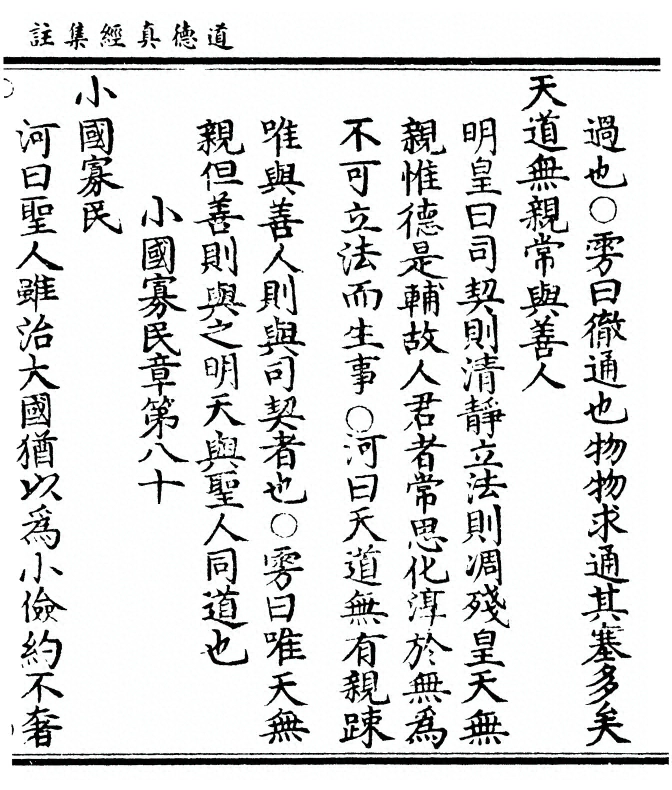 道德真經集註
過也○雱曰徹通也物物求通其塞多矣
天道無親常與善人
明皇曰司契則清靜立法則凋殘皇天無
親惟德是輔故人君者常思化淳於無爲
不可立法而生事○河曰天道無有親踈
唯與善人則與司契者也○雱曰唯天無
親但善則與之明天與聖人同道也
小國寡民章第八十
小國寡民
河曰聖人雖治大國猶以爲小儉約不奢